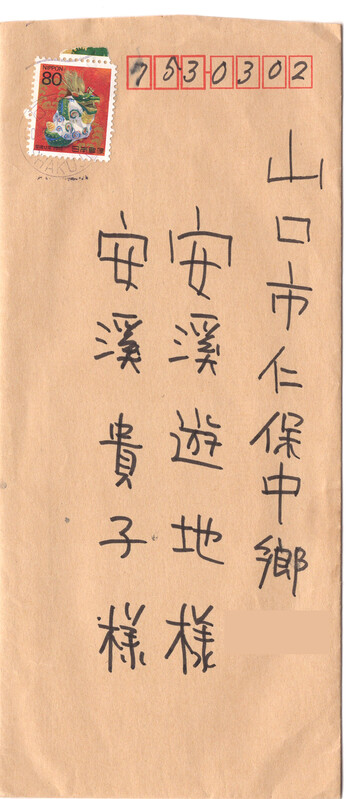 7530302
NIPPON
80
日本郵便
山口市仁保中郷
安溪遊地様
安溪貴子様